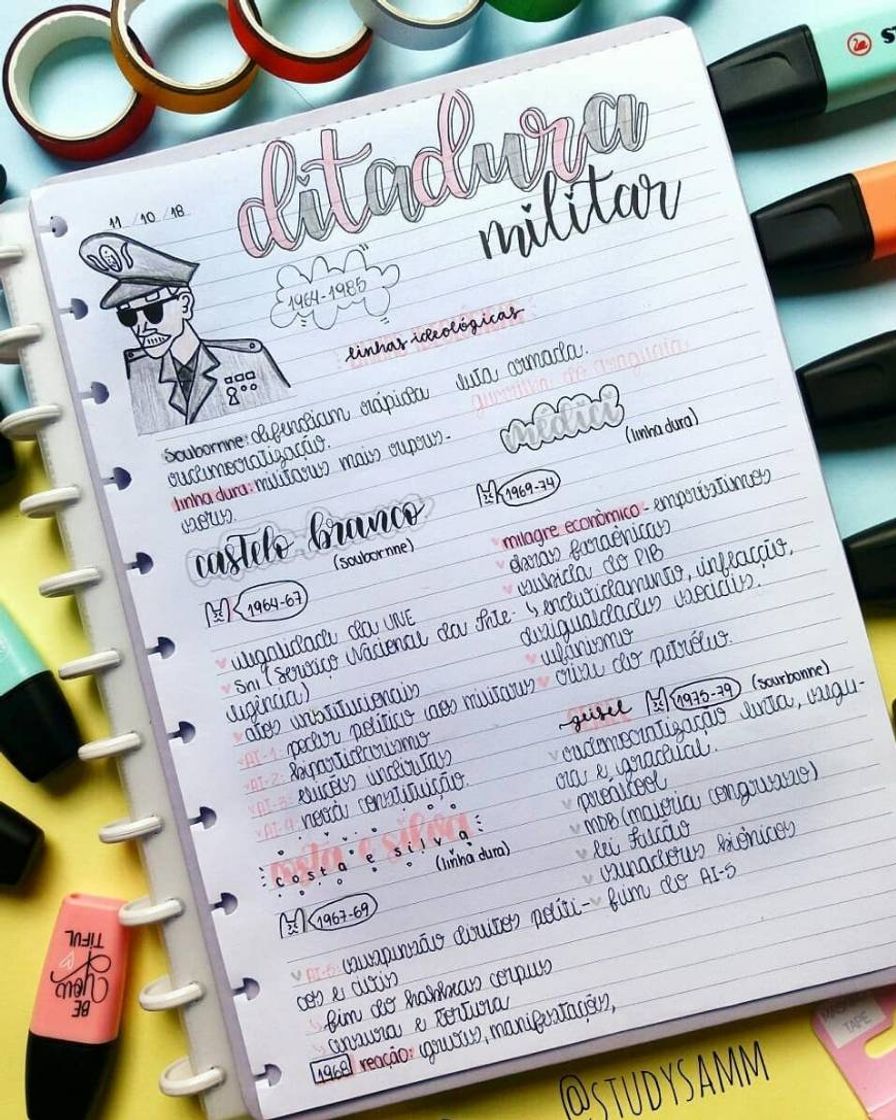 11 / 10 / 18
ditadura
militar
1964-1985
linhas ideológicas
Soubornne: defendiam rápida
redemocratização.
linha dura: militares mais repres-
sores.
castelo branco
(soubornne)
1964-67
ilegalidade da UNE
SNI (Serviço Nacional da Inte-
ligência)
atos institucionais
AI-1: poder político aos militares
AI-2: bipartidarismo
AI-3: eleições indiretas
AI-4: nova constituição.
costa e silva
(linha dura)
1967-69
AI-5: suspensão direitos políti-
cos e civis
fim do habbeas corpus
censura e tortura
1968 reação: greves, manifestações,
luta armada.
guerrilha do araguaia
médici
(linha dura)
1969-74
milagre econômico - empréstimos
obras faraônicas
subida do PIB
endividamento, inflação,
desigualdades sociais.
ufanismo
crise do petróleo.
geisel 1975-79 (sourbonne)
redemocratização lenta, segu-
ra e gradual.
proálcool
MDB (maioria congresso)
lei Falcão
senadores biônicos
fim do AI-5
@STUDYSAMM
BE
YOU
TIFUL
TAPE